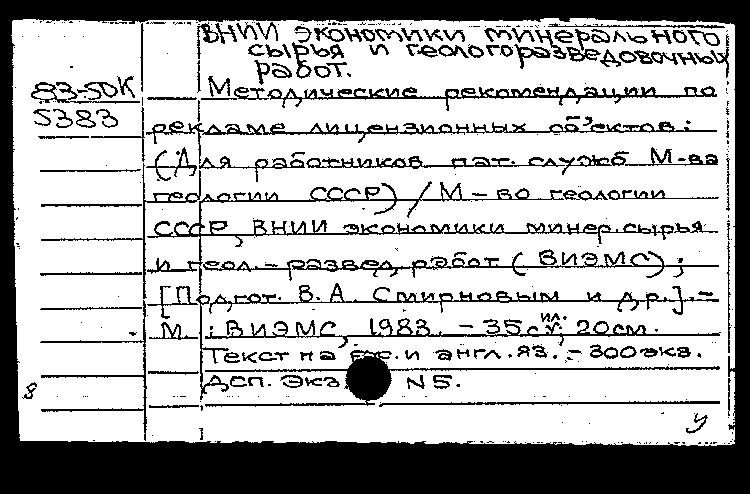 ВНИИ экономики минерального
сырья и геологоразведовочных
работ.
83-5DK
5383
Методические рекомендации по
рекламе лицензионных объектов:
(Для работников пат. служб М-ва
геологии СССР) / М-во геологии
СССР, ВНИИ экономики минер. сырья
и геол.-развед. работ (ВИЭМС);
[Подгот. В.А. Смирновым и др.].-
М.: ВИЭМС, 1983. - 35 с.: ил.; 20см.
Текст на рус. и англ. яз. - 300экз.
Дсп. Экз N5.
8
У